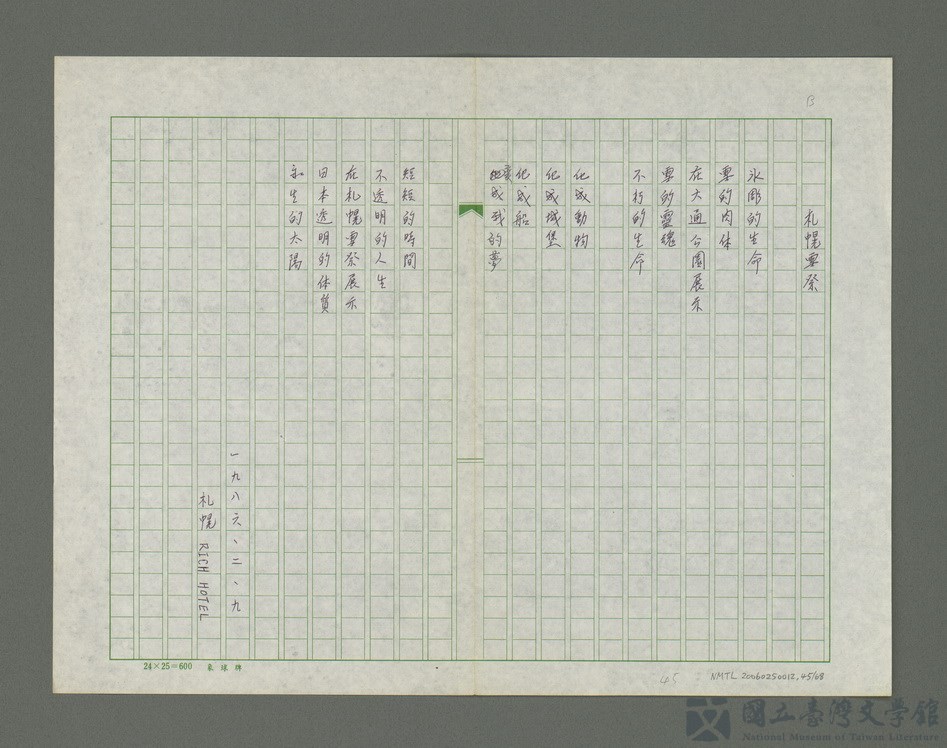 B
札幌雪祭
冰彫的生命
雪的肉体
在大通公園展示
雪的靈魂
不朽的生命
化成動物
化成城堡
化成船
變成我的夢
短短的時間
不透明的人生
在札幌雪祭展示
日本透明的体質
永生的太陽
一九八六、二、九
札幌 RICH HOTEL
24×25=600 象球牌
45
NMTL 20060250012.45/68
國立臺灣文學館
National Museum of Taiwan Literature